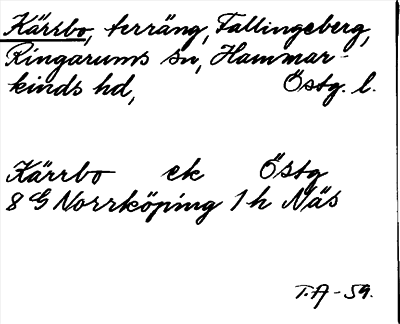 Kärrbo, terräng, Fallingeberg,
Ringarums sn, Hammar-
kinds hd, Östg. l.
Kärrbo ek Östg
8 G Norrköping 1 h Näs
T.A-59.